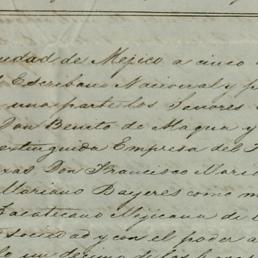 ciudad de Mejico a cinco
Escribano Nacional y p
una parte los Senores
Don Benito de Magua y
extinguida Empresa del F
xas Don Francisco Marie
Mariano Bayeres como m
Zacatecano Mejicana de
sociedad y con el poder a